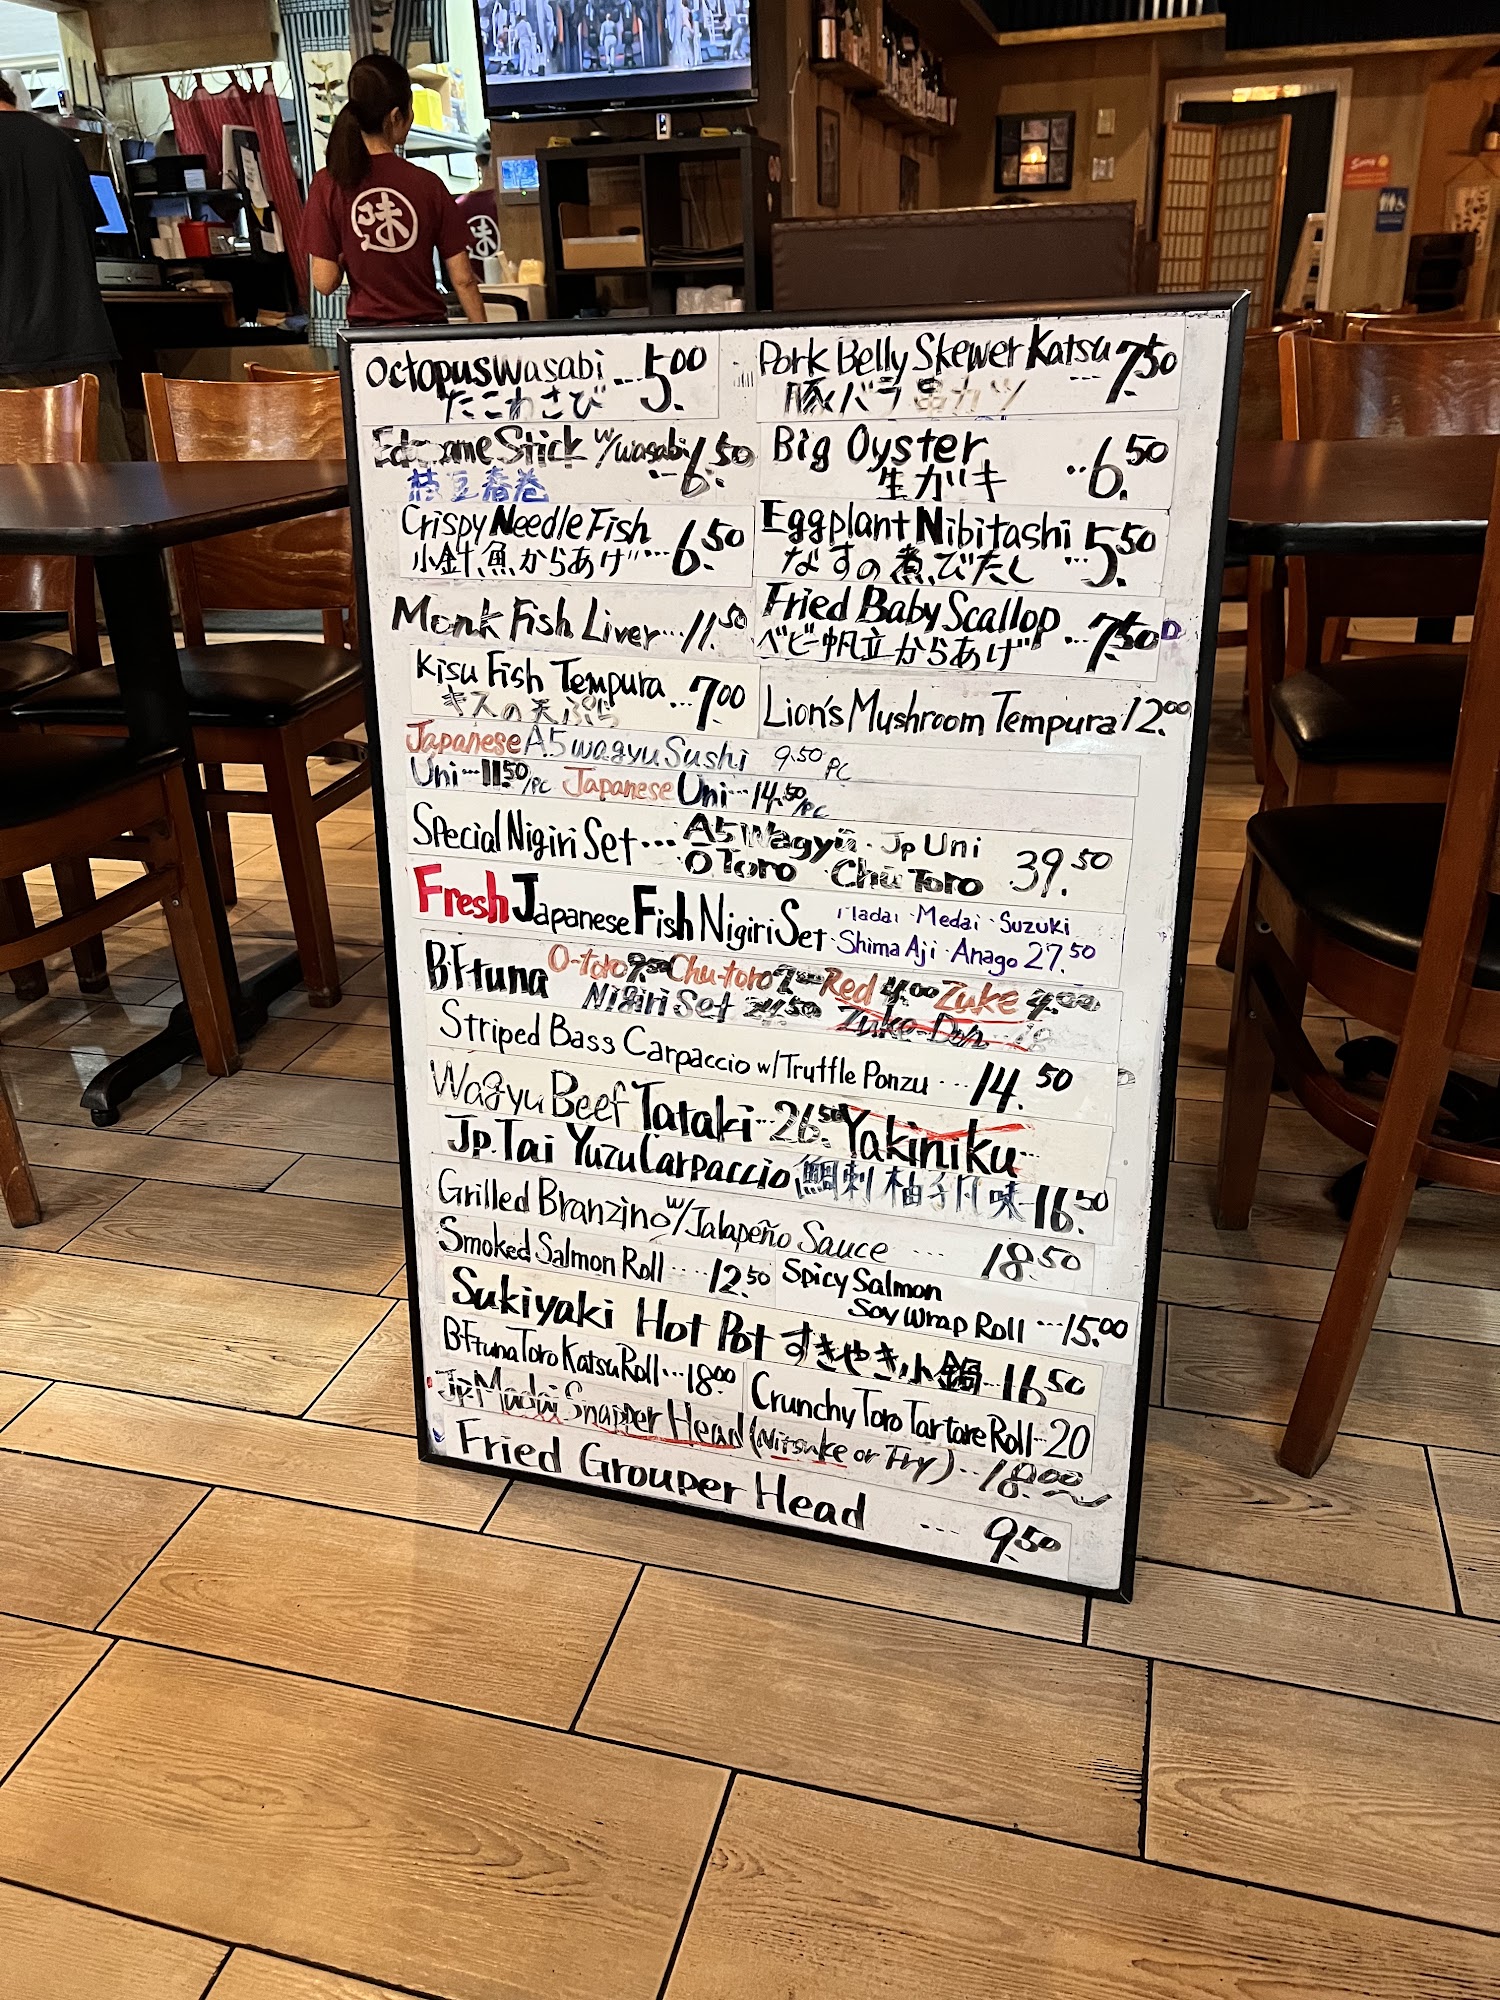 Octopus Wasabi ... 5.00
たこわさび
Pork Belly Skewer Katsu ... 7.50
豚バラ串カツ
Edamame Stick w/wasabi ... 6.50
枝豆春巻
Big Oyster ... 6.50
生ガキ
Crispy Needle Fish
小針魚からあげ ... 6.50
Eggplant Nibitashi ... 5.50
なすの煮びたし
Monk Fish Liver ... 11.50
Fried Baby Scallop ... 7.50
ベビー帆立からあげ
Kisu Fish Tempura ... 7.00
キスの天ぷら
Lion's Mushroom Tempura 12.00
Japanese A5 wagyu Sushi 9.50 PC
Uni ... 11.50/PC Japanese Uni ... 14.50/PC
Special Nigiri Set ... A5 Wagyū · Jp Uni 39.50
O Toro · Chū Toro
Fresh Japanese Fish Nigiri Set Madai · Medai · Suzuki
Shima Aji · Anago 27.50
BF tuna O-toro 9.50 Chu-toro Red 4.00 Zuke 4.00
Nigiri Set 24.50 Zuke-Don
Striped Bass Carpaccio w/Truffle Ponzu ... 14.50
Wagyu Beef Tataki ... 26.50 Yakiniku ...
Jp. Tai Yuzu Carpaccio 鯛刺柚子風味 16.50
Grilled Branzino w/Jalapeño Sauce ... 18.50
Smoked Salmon Roll .... 12.50
Spicy Salmon
Soy Wrap Roll ... 15.00
Sukiyaki Hot Pot すきやき小鍋 ... 16.50
BF tuna Toro Katsu Roll ... 18.00
Crunchy Toro Tartare Roll ... 20
Jp. Madai Snapper Head (Nitsuke or Fry) .. 18.00~
Fried Grouper Head ... 9.50
味
味
SONY